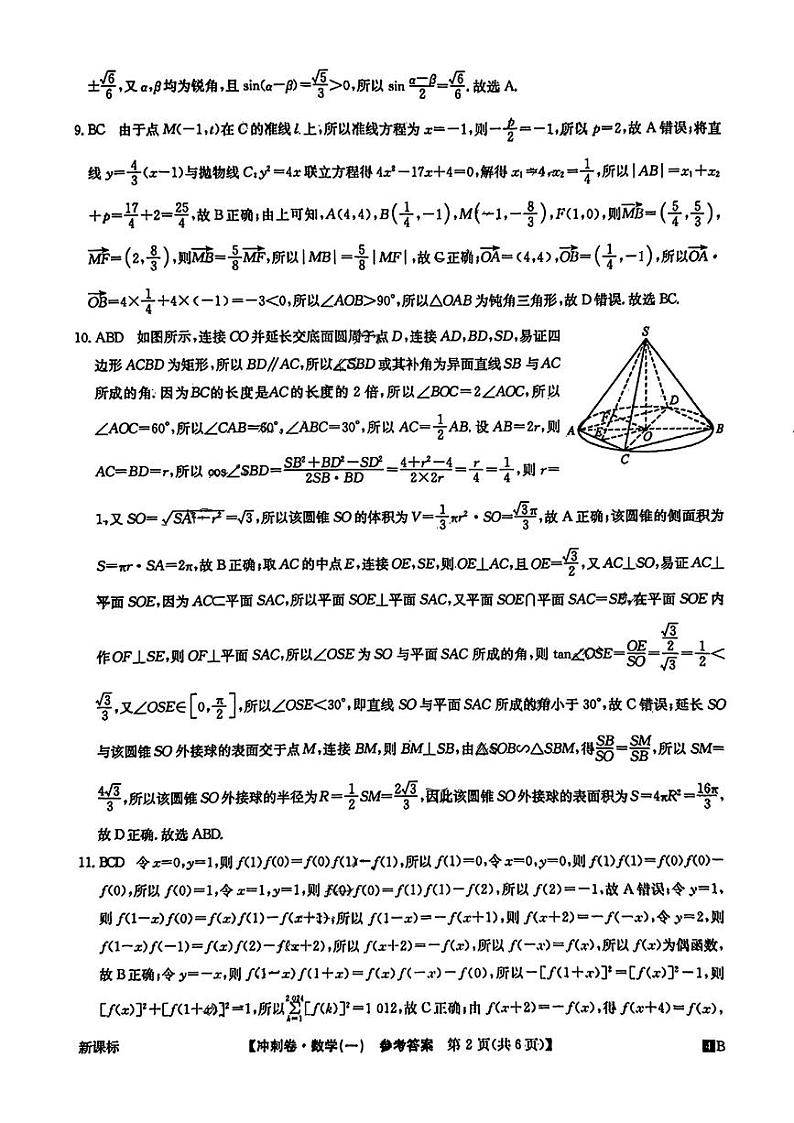 ±√6/6,又α,β均为锐角,且 sin(α-β)=√5/3>0,所以 sin (α-β)/2=√6/6.故选 A.
9. BC 由于点 M(-1,t)在 C 的准线 l 上,所以准线方程为 x=-1,则-p/2=-1,所以 p=2,故 A 错误;将直
线 y=4/3(x-1)与抛物线 C:y²=4x 联立方程得 4x²-17x+4=0,解得 x₁=4,x₂=1/4,所以|AB|=x₁+x₂
+p=17/4+2=25/4,故 B 正确;由上可知,A(4,4),B(1/4,-1),M(-1,-8/3),F(1,0),则MB→=(5/4,5/3),
MF→=(2,8/3),则MB→=5/8MF→,所以|MB|=5/8|MF|,故 C 正确;OA→=(4,4),OB→=(1/4,-1),所以OA→·
OB→=4×1/4+4×(-1)=-3<0,所以∠AOB>90°,所以△OAB 为钝角三角形,故 D 错误.故选 BC.
10. ABD 如图所示,连接 CO 并延长交底面圆周于点 D,连接 AD,BD,SD,易证四
边形 ACBD 为矩形,所以 BD∥AC,所以∠SBD 或其补角为异面直线 SB 与 AC
所成的角.因为BC的长度是AC的长度的 2 倍,所以∠BOC=2∠AOC,所以
∠AOC=60°,所以∠CAB=60°,∠ABC=30°,所以 AC=1/2AB.设 AB=2r,则
AC=BD=r,所以 cos∠SBD=(SB²+BD²-SD²)/(2SB·BD)=(4+r²-4)/(2×2r)=r/4=1/4,则 r=
1,又 SO=√(SA²-r²)=√3,所以该圆锥 SO 的体积为 V=1/3πr²·SO=√3π/3,故 A 正确;该圆锥的侧面积为
S=πr·SA=2π,故 B 正确;取 AC 的中点 E,连接 OE,SE,则 OE⊥AC,且 OE=√3/2,又 AC⊥SO,易证 AC⊥
平面 SOE,因为 AC⊂平面 SAC,所以平面 SOE⊥平面 SAC,又平面 SOE∩平面 SAC=SE,在平面 SOE 内
作 OF⊥SE,则 OF⊥平面 SAC,所以∠OSE 为 SO 与平面 SAC 所成的角,则 tan∠OSE=OE/SO=(√3/2)/√3=1/2<
√3/3,又∠OSE∈[0,π/2],所以∠OSE<30°,即直线 SO 与平面 SAC 所成的角小于 30°,故 C 错误;延长 SO
与该圆锥 SO 外接球的表面交于点 M,连接 BM,则 BM⊥SB,由△SOB∽△SBM,得SB/SO=SM/SB,所以 SM=
4√3/3,所以该圆锥 SO 外接球的半径为 R=1/2SM=2√3/3,因此该圆锥 SO 外接球的表面积为 S=4πR²=16π/3,
故 D 正确.故选 ABD.
S
A
B
C
D
E
F
O
11. BCD 令 x=0,y=1,则 f(1)f(0)=f(0)f(1)-f(1),所以 f(1)=0,令 x=0,y=0,则 f(1)f(1)=f(0)f(0)-
f(0),所以 f(0)=1,令 x=1,y=1,则 f(0)f(0)=f(1)f(1)-f(2),所以 f(2)=-1,故 A 错误;令 y=1,
则 f(1-x)f(0)=f(x)f(1)-f(x+1),所以 f(1-x)=-f(x+1),则 f(x+2)=-f(-x),令 y=2,则
f(1-x)f(-1)=f(x)f(2)-f(x+2),所以 f(x+2)=-f(x),所以 f(-x)=f(x),所以 f(x)为偶函数,
故 B 正确;令 y=-x,则 f(1-x)f(1+x)=f(x)f(-x)-f(0),所以-[f(1+x)]²=[f(x)]²-1,则
[f(x)]²+[f(1+x)]²=1,所以∑(k=1→2 024)[f(k)]²=1 012,故 C 正确;由 f(x+2)=-f(x),得 f(x+4)=f(x),
新课标 【冲刺卷·数学(一) 参考答案 第 2 页(共 6 页)】 B